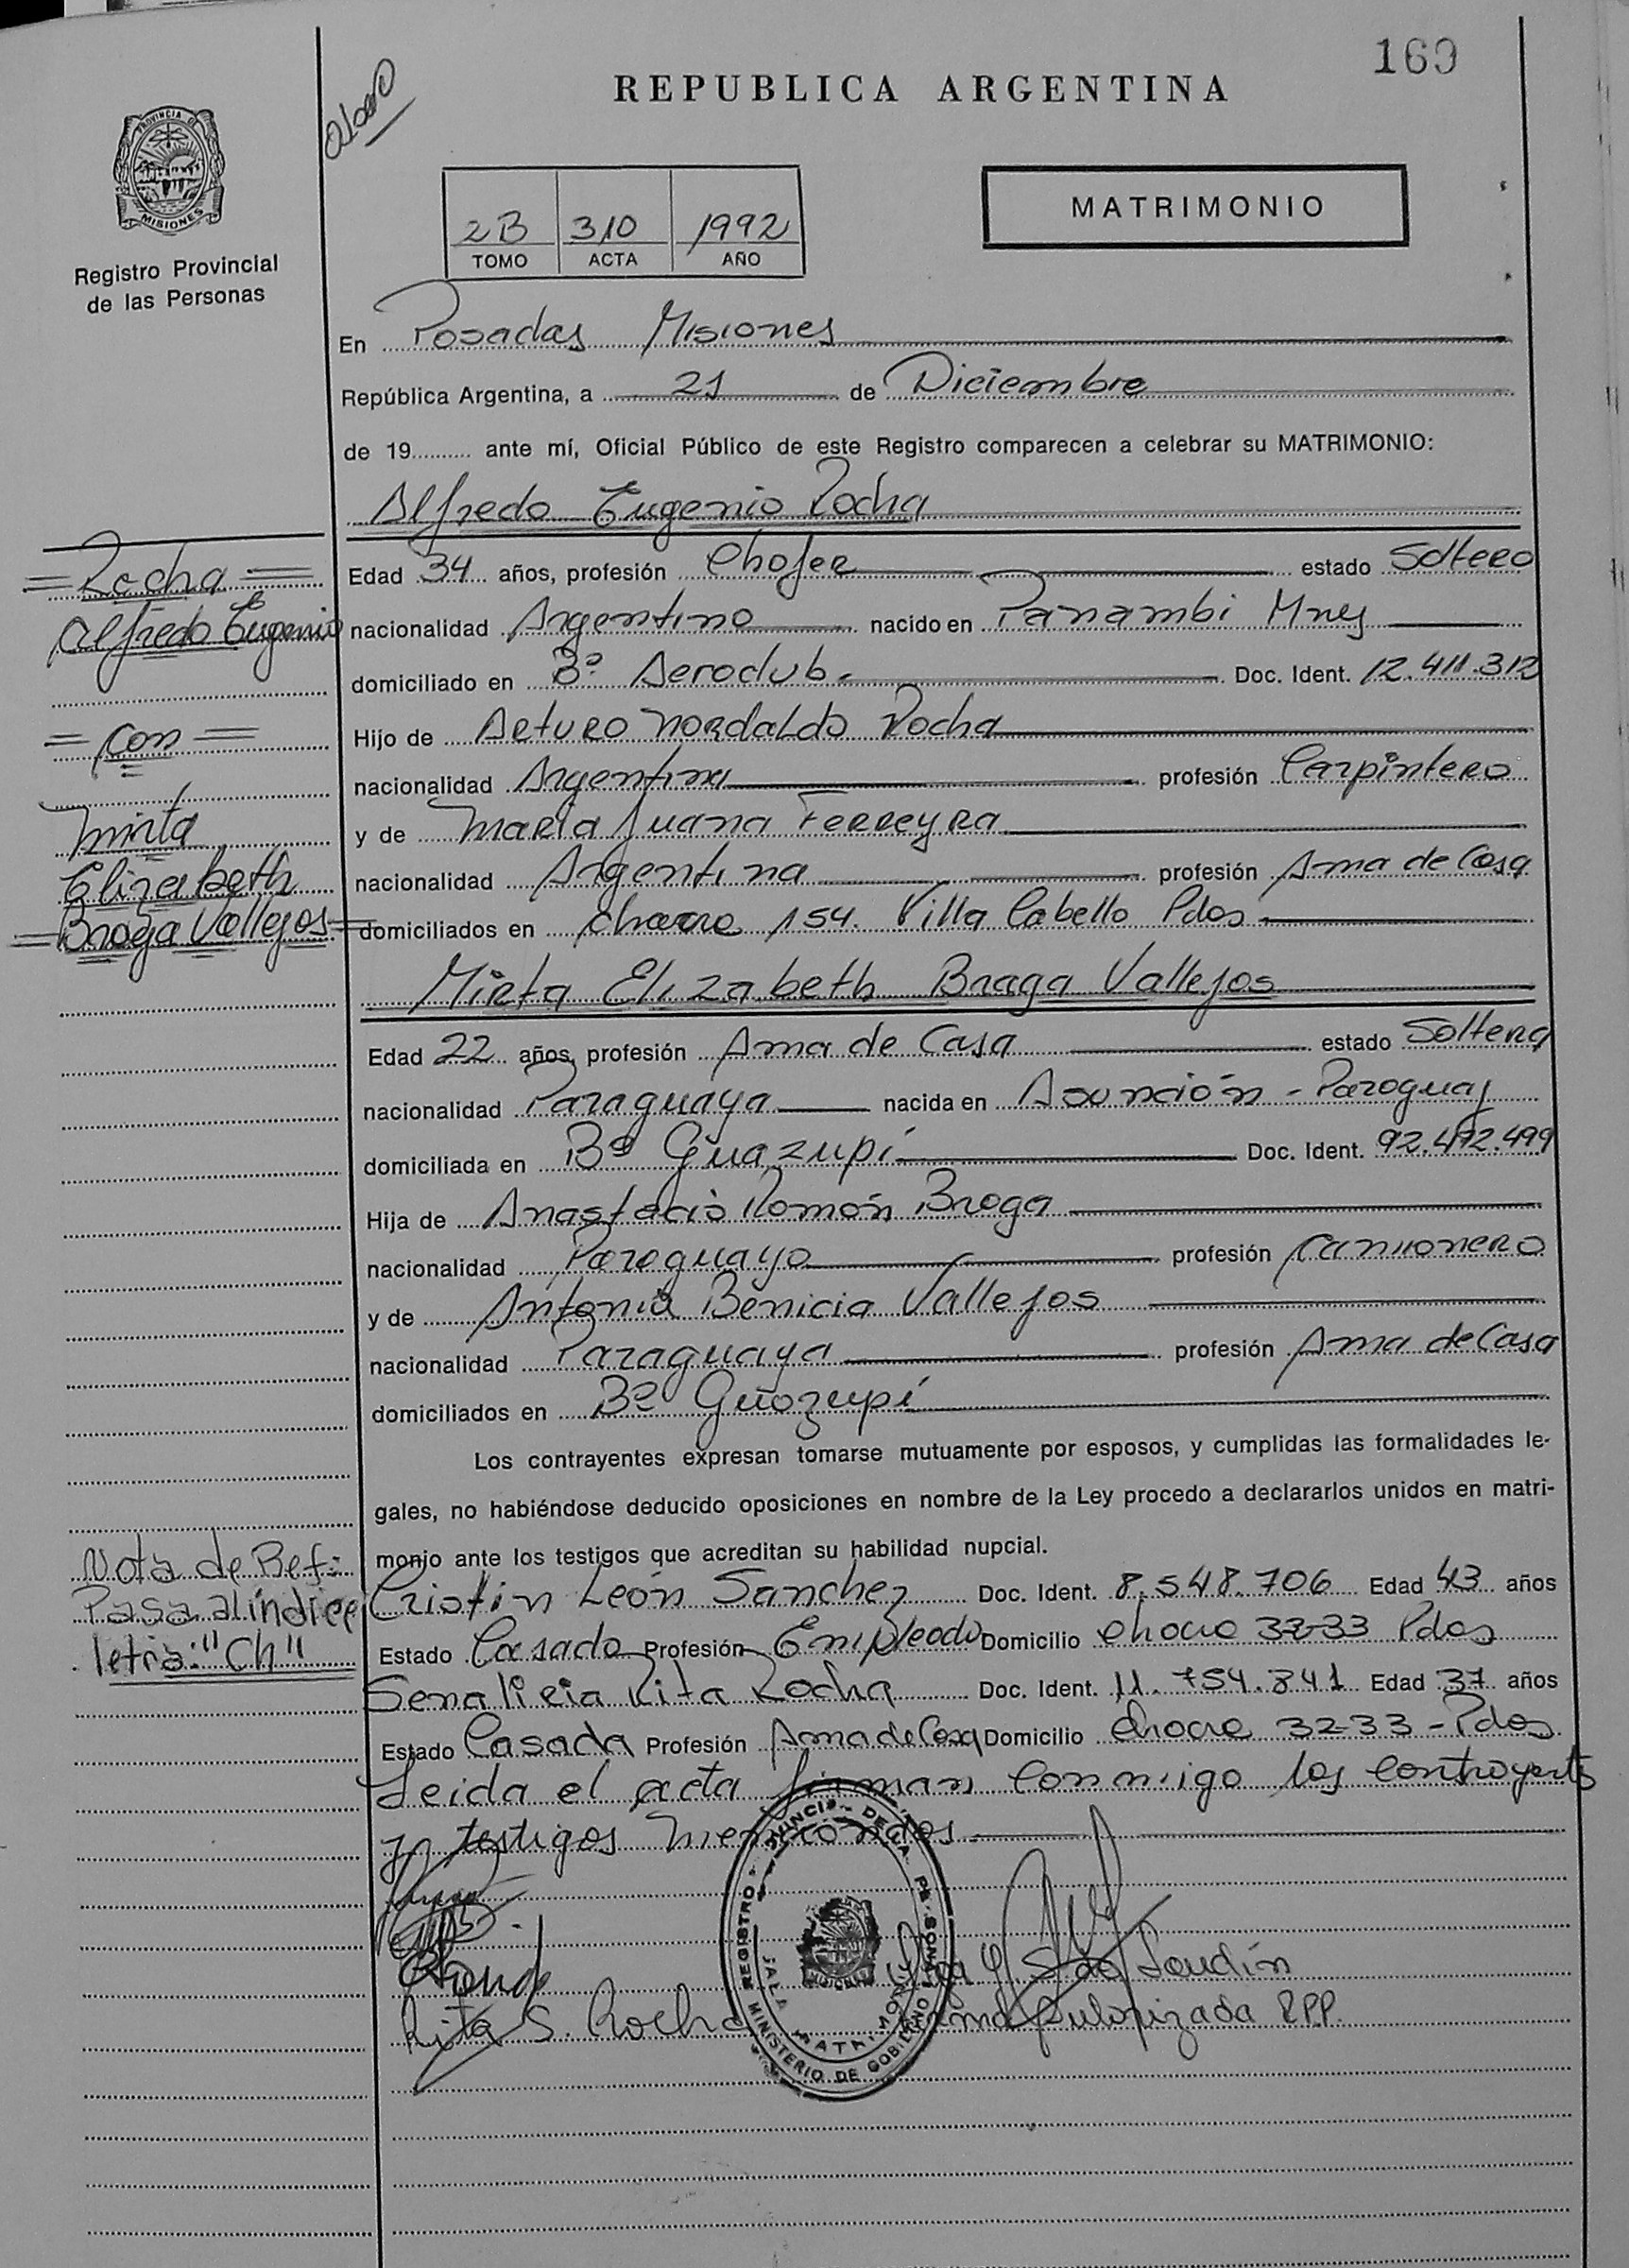 160
REPUBLICA ARGENTINA
PROVINCIA DE
MISIONES
Registro Provincial
de las Personas
2B 310 1992
TOMO ACTA AÑO
MATRIMONIO
En Posadas Misiones
República Argentina, a 21 de Diciembre
de 19.......... ante mí, Oficial Público de este Registro comparecen a celebrar su MATRIMONIO:
Alfredo Eugenio Rocha
Edad 34 años, profesión Chofer estado Soltero
nacionalidad Argentino nacido en Panambi Mnes
domiciliado en Bº Aeroclub. Doc. Ident. 12.411.312
Hijo de Arturo Nordaldo Rocha
nacionalidad Argentina profesión Carpintero
y de Maria Juana Ferreyra
nacionalidad Argentina profesión Ama de Casa
domiciliados en chacra 154. Villa Cabello Pdas
Mirta Elizabeth Braga Vallejos
Edad 22 años, profesión Ama de Casa estado Soltera
nacionalidad Paraguaya nacida en Asunción - Paraguay
domiciliada en Bº Guazupí Doc. Ident. 92.472.499
Hija de Anastacio Román Braga
nacionalidad Paraguayo profesión Camionero
y de Antonia Benicia Vallejos
nacionalidad Paraguaya profesión Ama de Casa
domiciliados en Bº Guazupí
Los contrayentes expresan tomarse mutuamente por esposos, y cumplidas las formalidades le-
gales, no habiéndose deducido oposiciones en nombre de la Ley procedo a declararlos unidos en matri-
monio ante los testigos que acreditan su habilidad nupcial.
Cristin León Sanchez Doc. Ident. 8.548.706 Edad 43 años
Estado Casado Profesión Empleado Domicilio chacra 32-33 Pdas
Senalicia Rita Rocha Doc. Ident. 11.754.841 Edad 37 años
Estado Casada Profesión Ama de Casa Domicilio chacra 32-33 - Pdas
Leida el acta firman conmigo los contrayents
y testigos mencionados
Rita S. Rocha
Autorizada RPP.
REGISTRO PROVINCIAL DE LAS PERSONAS
MINISTERIO DE GOBIERNO
SALA MATRIMONIOS
MISIONES
= Rocha =
Alfredo Eugenio
= con =
Mirta
Elizabeth
= Braga Vallejos =
Nota de Ref:
Pasa al índice
letra: "Ch"